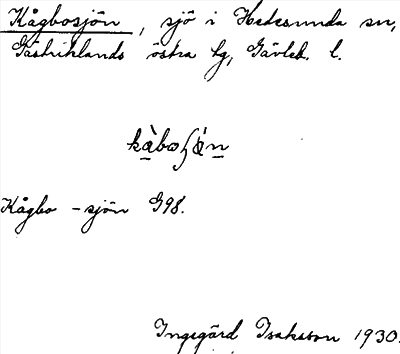 Kågbosjön, sjö i Hedesunda sn,
Gästriklands östra tg, Gävleb. l.
Kågbo - sjön G98.
Ingegärd Isaksson 1930.